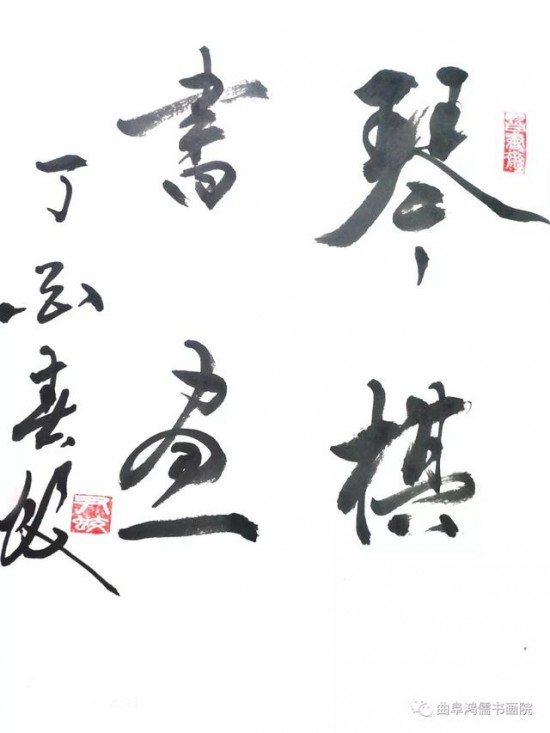 琴棋
書畫
丁酉春
曲阜鸿儒书画院